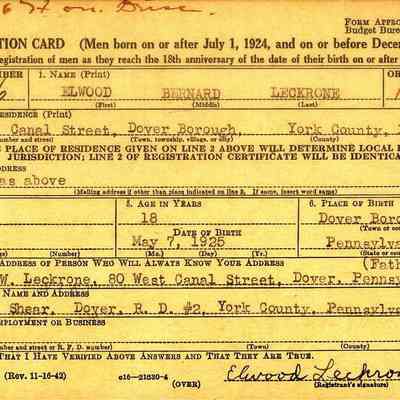 FORM APPRO
Budget Bure
TION CARD (Men born on or after July 1, 1924, and on or before Decem
egistration of men as they reach the 18th anniversary of the date of their birth on or after
MBER 1. NAME (Print) OR
ELWOOD BERNARD LECKRONE
(First) (Middle) (Last)
RESIDENCE (Print)
Canal Street, Dover Borough, York County,
mber and street) (Town, township, village, or city) (County)
PLACE OF RESIDENCE GIVEN ON LINE 2 ABOVE WILL DETERMINE LOCAL
JURISDICTION; LINE 2 OF REGISTRATION CERTIFICATE WILL BE IDENTICA
DDRESS
as above
(Mailing address if other than place indicated on line 2. If same, insert word same)
5. AGE IN YEARS 6. PLACE OF BIRTH
18 Dover Boro
DATE OF BIRTH (Town or co
May 7, 1925 Pennsylva
(Number) (Mo.) (Day) (Yr.) (State or co
ADDRESS OF PERSON WHO WILL ALWAYS KNOW YOUR ADDRESS (Fath
W. Leckrone, 80 West Canal Street, Dover, Penns
NAME AND ADDRESS
Shear, Dover, R. D. #2, York County, Pennsylva
MPLOYMENT OR BUSINESS
mber and street or R. F. D. number) (Town) (County)
THAT I HAVE VERIFIED ABOVE ANSWERS AND THAT THEY ARE TRUE.
(Rev. 11-16-42) c16—21630-4 (OVER) Elwood Leckron
(Registrant's signature)